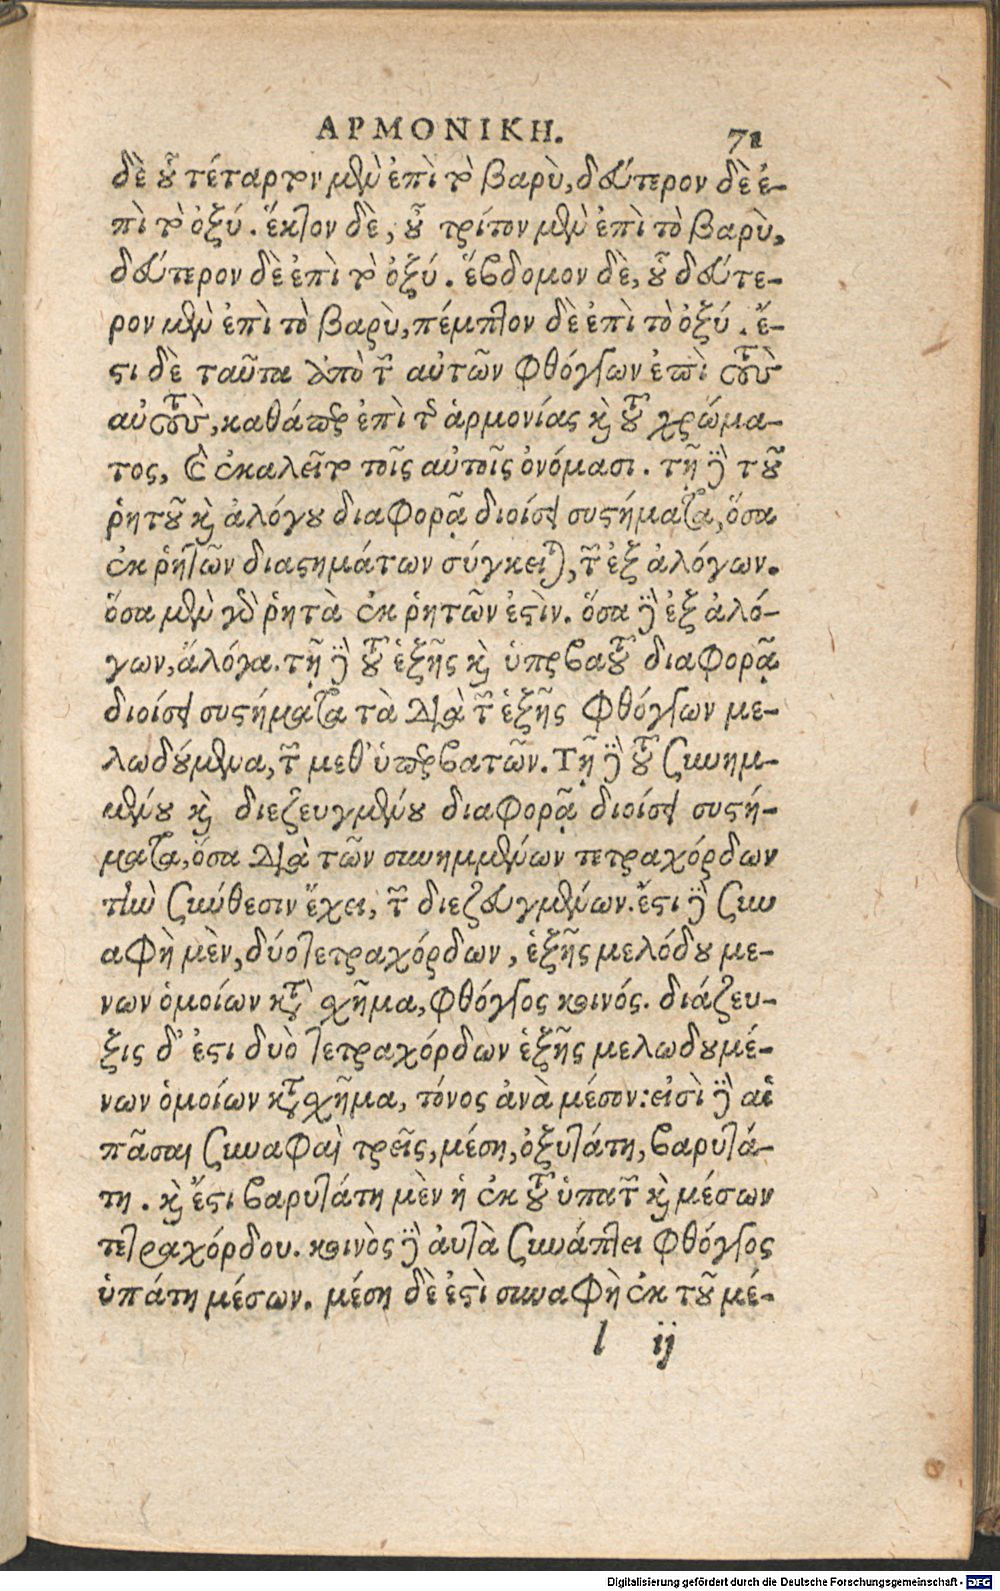 ΑΡΜΟΝΙΚΗ. 71
δὲ οὗ τέταρτον μὲν ἐπὶ τὸ βαρὺ, δεύτερον δὲ ἐ-
πὶ τὸ ὀξύ. ἕκτον δὲ, οὗ τρίτον μὲν ἐπὶ τὸ βαρὺ,
δεύτερον δὲ ἐπὶ τὸ ὀξύ. ἕβδομον δὲ, οὗ δεύτε-
ρον μὲν ἐπὶ τὸ βαρὺ, πέμπτον δὲ ἐπὶ τὸ ὀξύ. ἔ-
στι δὲ ταῦτα ἀπὸ τῶν αὐτῶν φθόγγων ἐπὶ τοὺς
αὐτοὺς, καθάπερ ἐπὶ τῆς ἁρμονίας καὶ τοῦ χρώμα-
τος, καὶ ἐκαλεῖτο τοῖς αὐτοῖς ὀνόμασι. τῇ δὲ τοῦ
ῥητοῦ καὶ ἀλόγου διαφορᾷ διοίσει συστήματα, ὅσα
ἐκ ῥητῶν διαστημάτων σύγκειται, τῶν ἐξ ἀλόγων.
ὅσα μὲν γὰρ ῥητὰ ἐκ ῥητῶν ἐστὶν. ὅσα δὲ ἐξ ἀλό-
γων, ἄλόγα. τῇ δὲ τοῦ ἑξῆς καὶ ὑπερβατοῦ διαφορᾷ
διοίσει συστήματα τὰ διὰ τῶν ἑξῆς φθόγγων με-
λωδούμενα, τῶν μεθ' ὑπερβατῶν. Τῇ δὲ τοῦ συνημ-
μένου καὶ διεζευγμένου διαφορᾷ διοίσει συστή-
ματα, ὅσα διὰ τῶν συνημμένων τετραχόρδων
τὴν σύνθεσιν ἔχει, τῶν διεζευγμένων. ἔστι δὲ συν
αφὴ μὲν, δύο τετραχόρδων, ἑξῆς μελόδου με-
νων ὁμοίων κατὰ σχῆμα, φθόγγος κοινός. διάζευ-
ξις δ' ἐστι δυὸ τετραχόρδων ἑξῆς μελωδουμέ-
νων ὁμοίων κατὰ σχῆμα, τόνος ἀνὰ μέσον: εἰσὶ δὲ αἱ
πᾶσαι συναφαὶ τρεῖς, μέση, ὀξυτάτη, βαρυτά-
τη. καὶ ἔστι βαρυτάτη μὲν ἡ ἐκ τοῦ ὑπατῶν καὶ μέσων
τετραχόρδου. κοινὸς δὲ αὐτὰ συνάπτει φθόγγος
ὑπάτη μέσων. μέση δὲ ἐστὶ συναφὴ ἐκ τοῦ μέ-
l ij
Digitalisierung gefördert durch die Deutsche Forschungsgemeinschaft - DFG